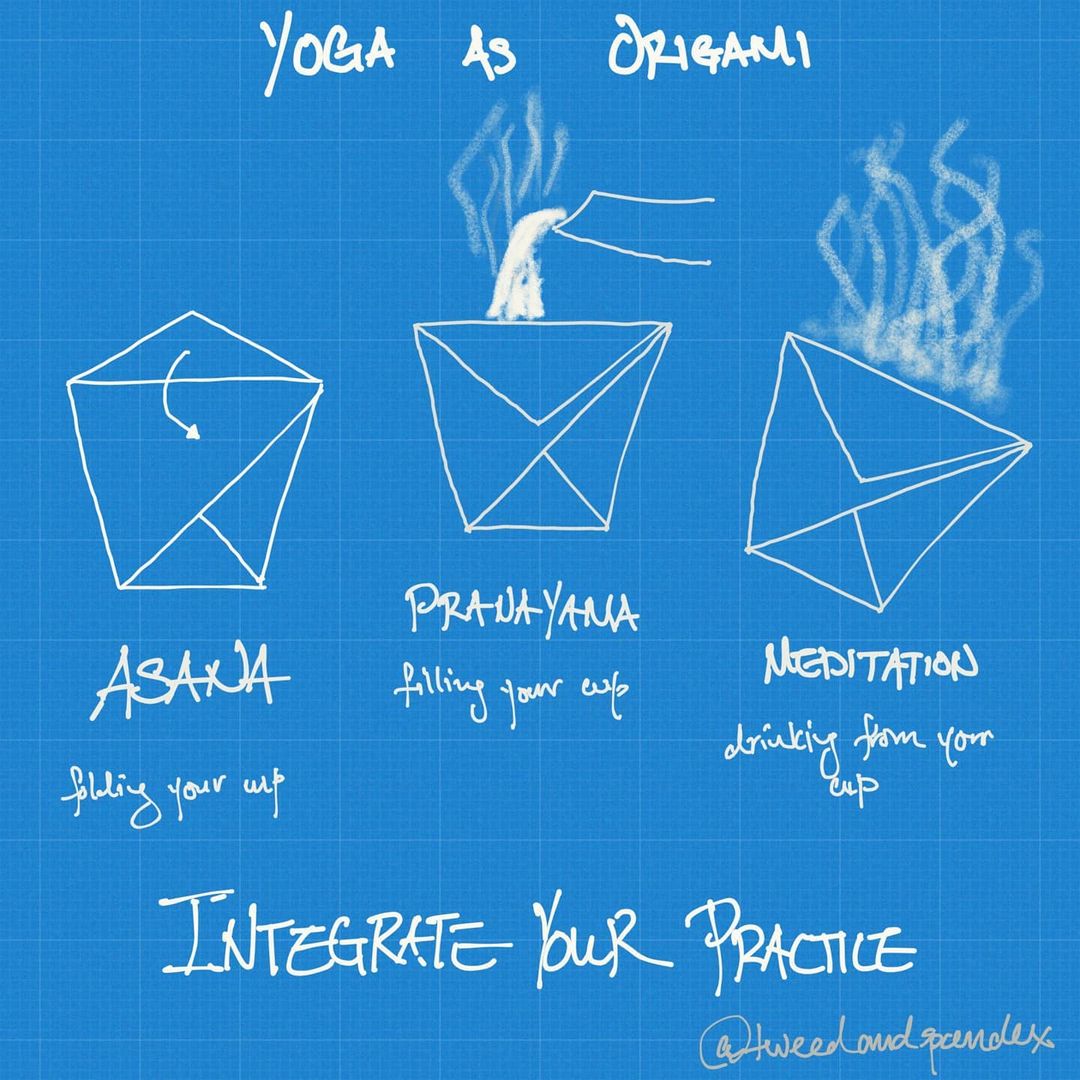 YOGA AS ORIGAMI
ASANA
folding your cup
PRANAYAMA
filling your cup
MEDITATION
drinking from your
cup
INTEGRATE YOUR PRACTICE
@tweedandspandex